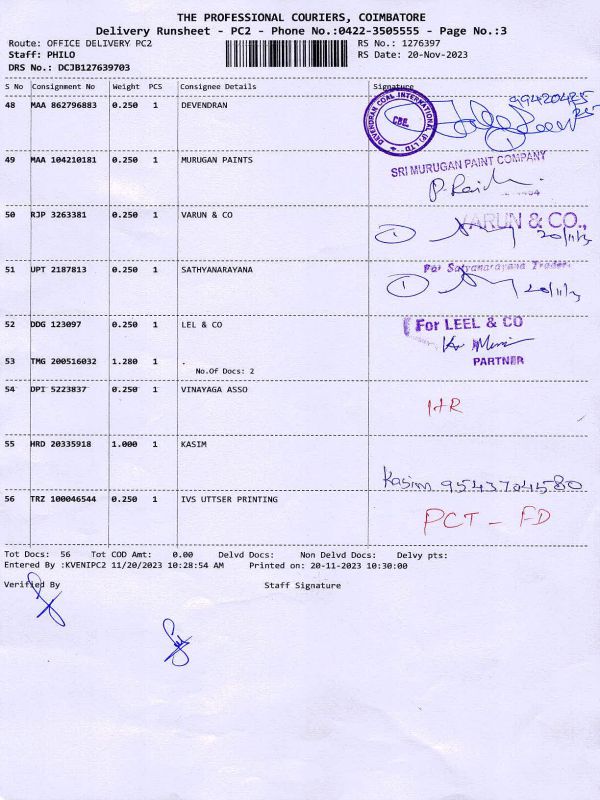 THE PROFESSIONAL COURIERS, COIMBATORE
Delivery Runsheet - PC2 - Phone No.:0422-3505555 - Page No.:3
Route: OFFICE DELIVERY PC2 RS No.: 1276397
Staff: PHILO RS Date: 20-Nov-2023
DRS No.: DCJB127639703
S No Consignment No Weight PCS Consignee Details Signature
48 MAA 862796883 0.250 1 DEVENDRAN
DEVENDRAN COAL INTERNATIONAL (P) LTD CBE.
49 MAA 104210181 0.250 1 MURUGAN PAINTS
SRI MURUGAN PAINT COMPANY
50 RJP 3263381 0.250 1 VARUN & CO
VARUN & CO.,
20/11/23
51 UPT 2187813 0.250 1 SATHYANARAYANA
For Satyanarayana Traders
20/11/23
52 DDG 123097 0.250 1 LEL & CO
For LEEL & CO
PARTNER
53 TMG 200516032 1.280 1 .
No.Of Docs: 2
54 DPI 5223837 0.250 1 VINAYAGA ASSO
55 HRD 20335918 1.000 1 KASIM
Kasim 9543704580
56 TRZ 100046544 0.250 1 IVS UTTSER PRINTING
PCT - FD
Tot Docs: 56 Tot COD Amt: 0.00 Delvd Docs: Non Delvd Docs: Delvy pts:
Entered By :KVENIPC2 11/20/2023 10:28:54 AM Printed on: 20-11-2023 10:30:00
Verified By Staff Signature